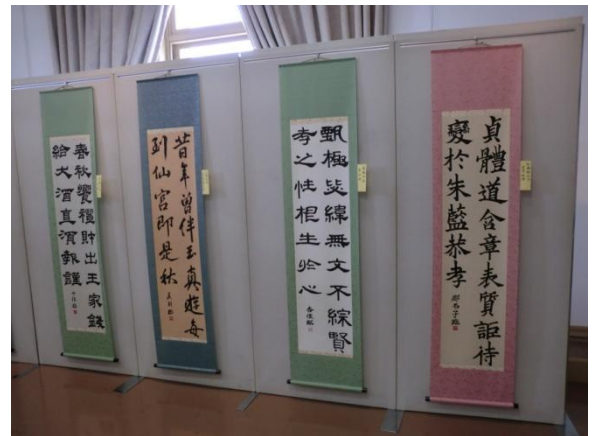 貞體道含章表質詎待
變於朱藍恭孝
甄極毖緯無文不綜賢
孝之性根生於心
昔年曾伴玉真遊每
到仙宮即是秋
春秋饗禮財出王家錢
給犬酒直須報謹